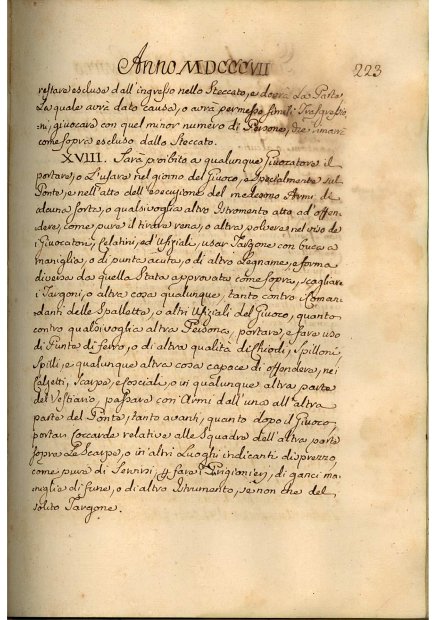 Anno MDCCCVII
223
restare esclusa dall'ingresso nello Steccato, e dovrà la Parte
La quale avrà dato causa, o avrà permesse simili Trasgressio,
ni, giuocare con quel minor numero di Persone, che rimarrà
come sopra escluso dallo Steccato.
XVIII. Sarà proibito a qualunque Giuocatore il
portare, o L'usare nel giorno del Giuoco, e specialmente sul
Ponte, e nell'atto dell'esecuzione del medesimo Armi di
alcuna sorte, o qualsivoglia altro Istromento atto ad offen
dere, come pure il tirare rena, o altra polvere nel viso de
i Giuocatori, Celatini, ed Uffiziali, usar Targone con buca a
maniglia, o di punta acuta, o di altro Legname, e forma
diversa da quella Stata approvata come sopra, scagliare
i Targoni, o altra cosa qualunque, tanto contro i Coman
danti delle Spallette, o altri Uffiziali del Giuoco, quanto
contro qualsivoglia altra Persona, portare, e fare uso
di Punte di ferro, o di altra qualità di Chiodi, Spilloni,
Spilli, e qualunque altra cosa capace di offendere, nei
Calzetti, Scarpe, e Cosciali, o in qualunque altra parte
del Vestiario, passare con Armi dall'una all'altra
parte del Ponte, tanto avanti, quanto dopo il Giuoco,
portar Coccarde relative alle Squadre dell'altra parte
sopra Le Scarpe, o in altri Luoghi indicanti disprezzo,
come pure di Servirsi p fare i Prigionieri, di ganci ma
niglie di fune, o di altro Istrumento, se non che del
solito Targone.